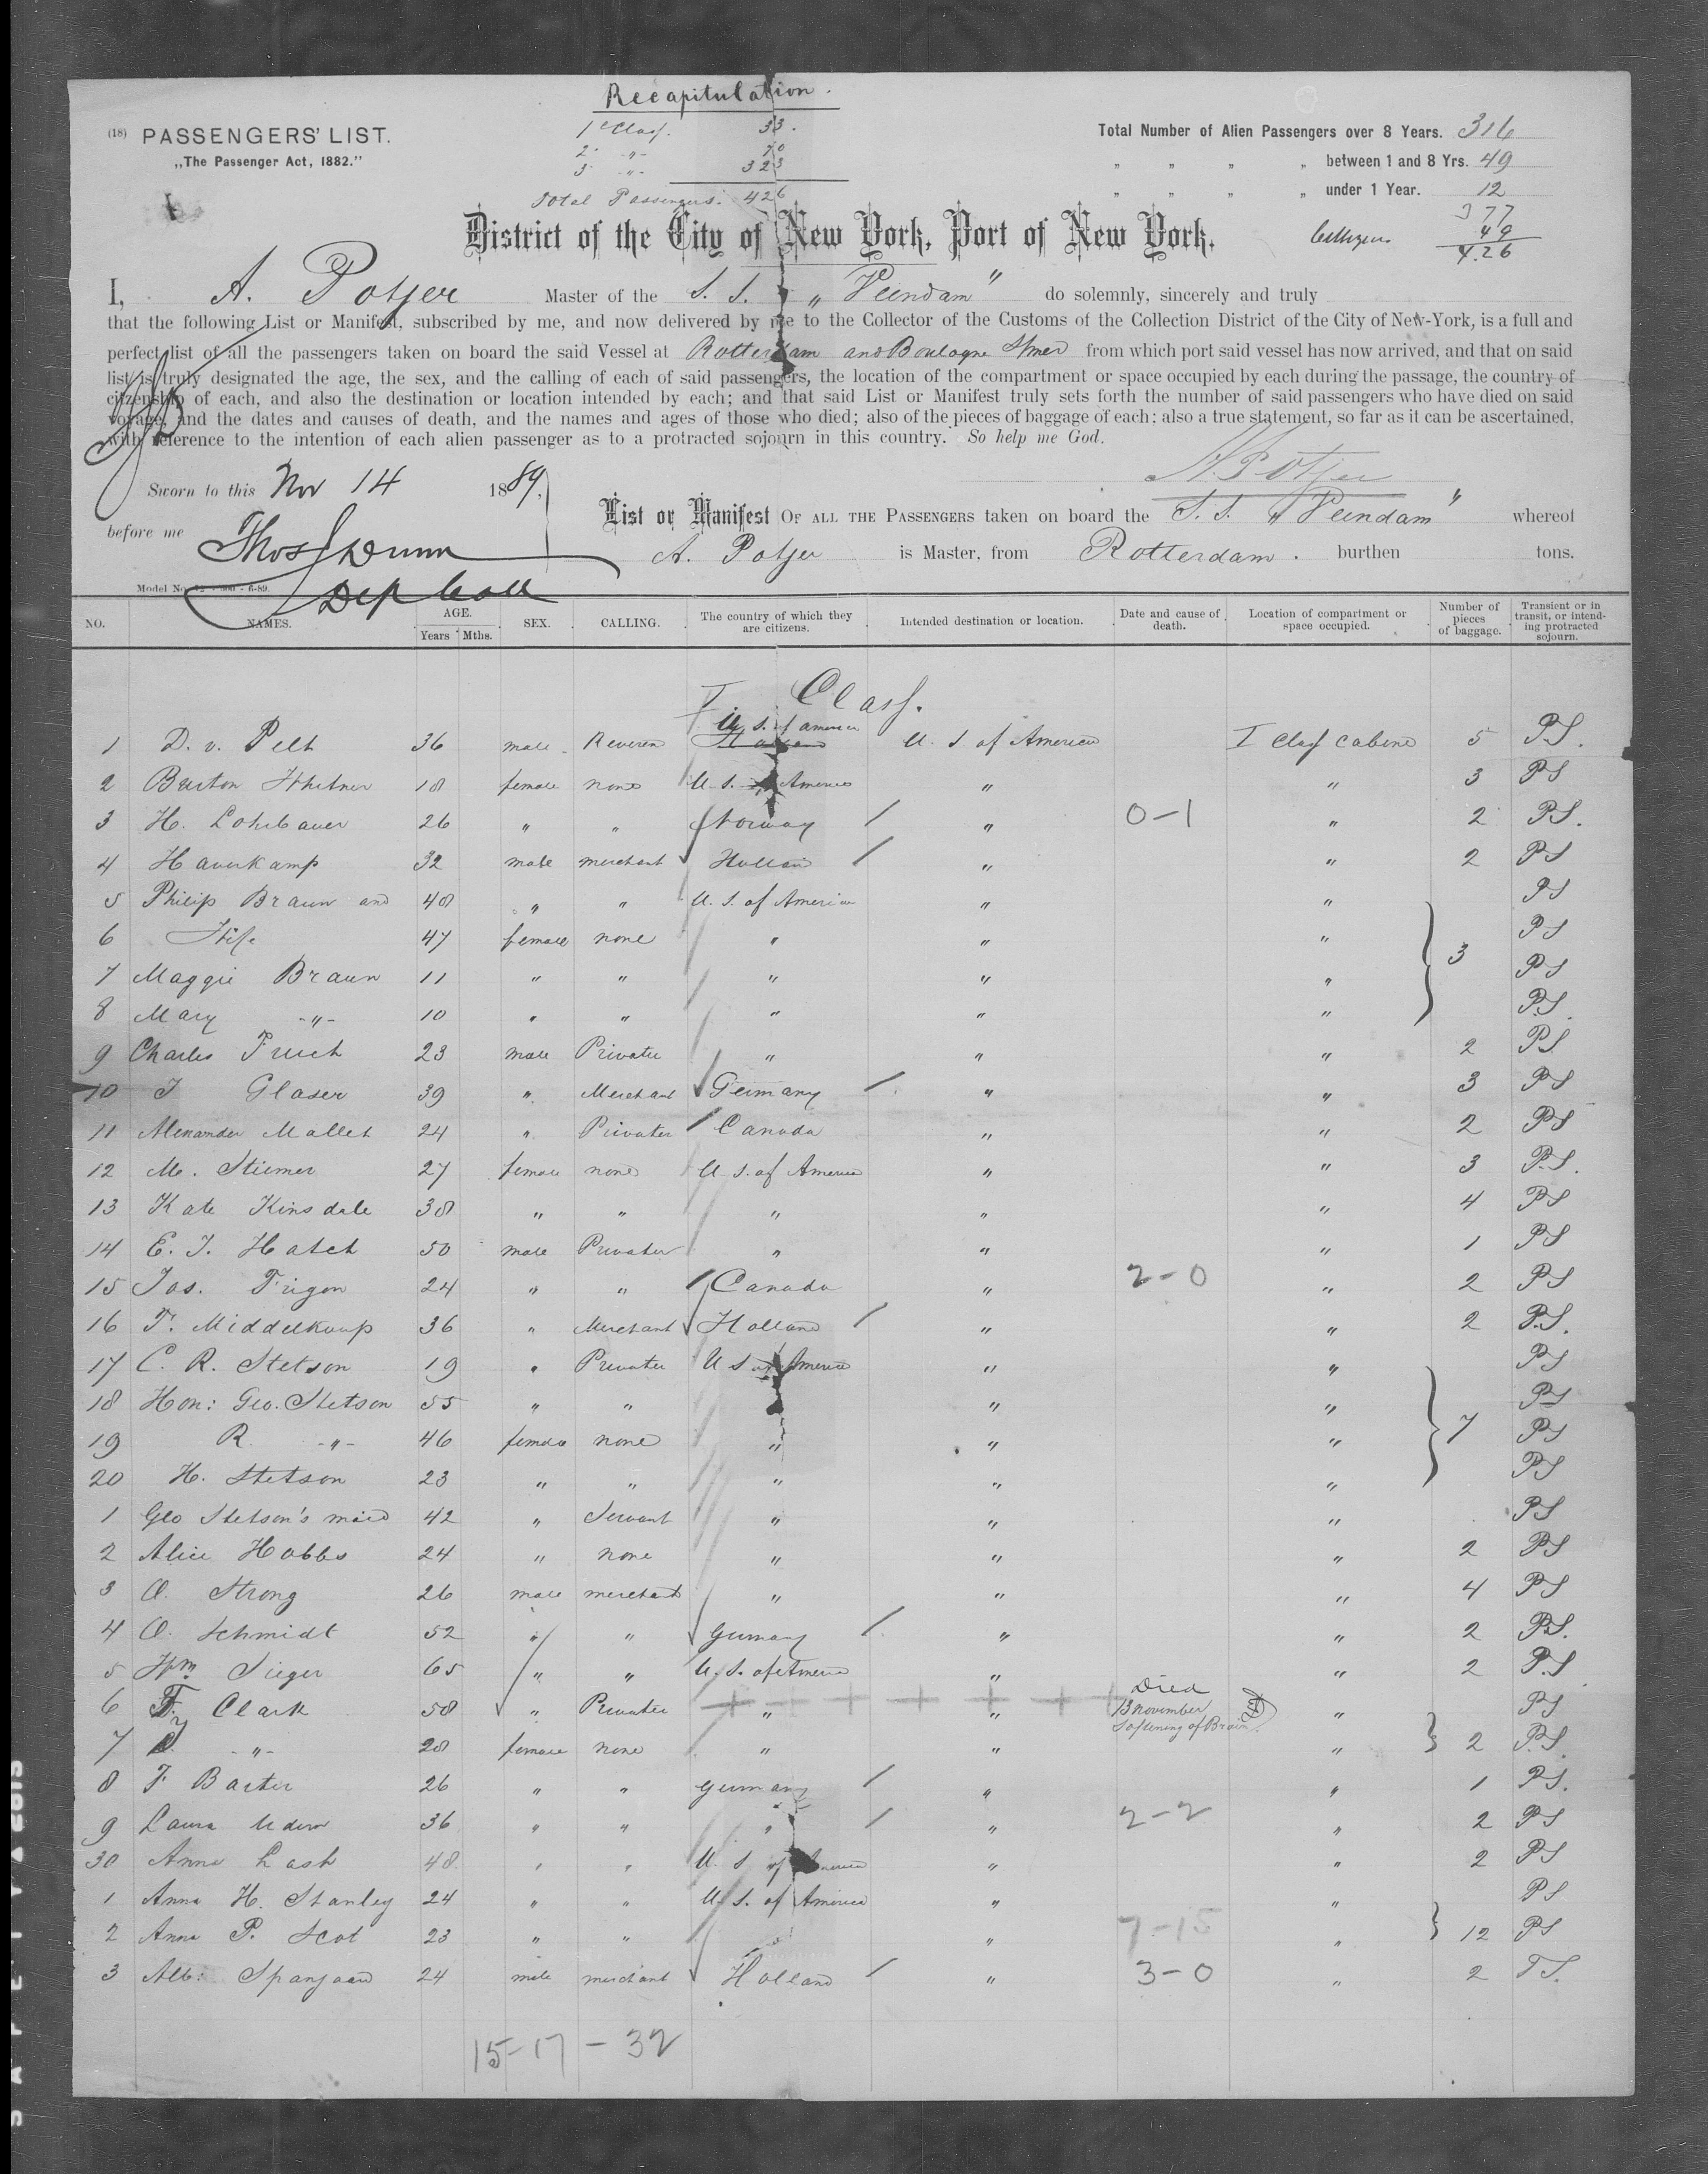 Recapitulation.
(18) PASSENGERS' LIST.
„The Passenger Act, 1882."
1e Class. 33.
2 -"- 70
3 -"- 323
Total Passengers: 426
Total Number of Alien Passengers over 8 Years. 316
„ „ „ „ between 1 and 8 Yrs. 49
„ „ „ „ under 1 Year. 12
377
49
426
District of the City of New York, Port of New York.
I, A. Potjer Master of the S. S. „Veendam" do solemnly, sincerely and truly
that the following List or Manifest, subscribed by me, and now delivered by me to the Collector of the Customs of the Collection District of the City of New-York, is a full and
perfect list of all the passengers taken on board the said Vessel at Rotterdam and Boulogne s/mer from which port said vessel has now arrived, and that on said
list is truly designated the age, the sex, and the calling of each of said passengers, the location of the compartment or space occupied by each during the passage, the country of
citzenship of each, and also the destination or location intended by each; and that said List or Manifest truly sets forth the number of said passengers who have died on said
voyage, and the dates and causes of death, and the names and ages of those who died; also of the pieces of baggage of each; also a true statement, so far as it can be ascertained,
with reference to the intention of each alien passenger as to a protracted sojourn in this country. So help me God.
A. Potjer
Sworn to this Nov 14 1889.
before me Thos J Dunn
Dep Coll
List or Manifest OF ALL THE PASSENGERS taken on board the S. S. „Veendam" whereof
A. Potjer is Master, from Rotterdam. burthen tons.
NO. NAMES. AGE. Years Mths. SEX. CALLING. The country of which they are citizens. Intended destination or location. Date and cause of death. Location of compartment or space occupied. Number of pieces of baggage. Transient or in transit, or intending protracted sojourn.
I Class.
1 D. v. Pelt 36 male Reveren U. S. of America U. S. of America I Class Cabine 5 P.S.
2 Burton Whitner 18 female none U. S. of America " " 3 PS
3 H. Lohrbauer 26 " " Norway / " 0-1 " 2 P.S.
4 Haverkamp 32 male merchant Holland / " " 2 PS
5 Philip Braun and 48 " " U. S. of America " " PS
6 Wife 47 female none " " " 3 PS
7 Maggie Braun 11 " " " " " PS
8 Mary -"- 10 " " " " " P.S.
9 Charles 23 male Privatier " " " 2 PS
10 J Glaser 39 " Merchant Germany / " " 3 PS
11 Alexander Mallet 24 " Privatier Canada " " 2 PS
12 M. Stiemer 27 female none U. S. of America " " 3 P.S.
13 Kate Kinsdale 38 " " " " " 4 PS
14 E. J. Hatch 50 male Privatier " " " 1 PS
15 Jos. Frigon 24 " " Canada " 2-0 " 2 PS
16 F. Middelkamp 36 " Merchant Holland / " " 2 P.S.
17 C. R. Stetson 19 " Privatier U S of America " " PS
18 Hon: Geo. Stetson 55 " " " " PS
19 R. -"- 46 female none " " " 7 PS
20 H. Stetson 23 " " " " " PS
1 Geo Stetson's maid 42 " Servant " " " PS
2 Alice Hobbs 24 " none " " " 2 PS
3 O. Strong 26 male merchant " " " 4 PS
4 O. Schmidt 52 " " Germany / " " 2 P.S.
5 Wm. Sieger 65 " " U. S. of America " " 2 P.S
6 F. Clark 58 " Privatier " " Died 13 November Softening of Brain " PS
7 -"- 28 female none " " " 2 P.S.
8 F Barter 26 " " Germany / " " 1 P.S.
9 Laura 36 " " " / " 2-2 " 2 PS
30 Anna Lash 48 " " U. S of America " " 2 PS
1 Anna H. Stanley 24 " " U. S. of America " " PS
2 Anna P. Scot 23 " " " 7-15 " 12 PS
3 Alb: Spanjaard 24 male merchant Holland / " 3-0 " 2 T S.
15-17-32